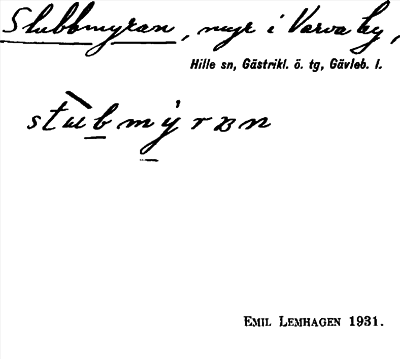 Slubbmyran, myr i Varva by,
Hille sn, Gästrikl. ö. tg, Gävleb. l.
EMIL LEMHAGEN 1931.